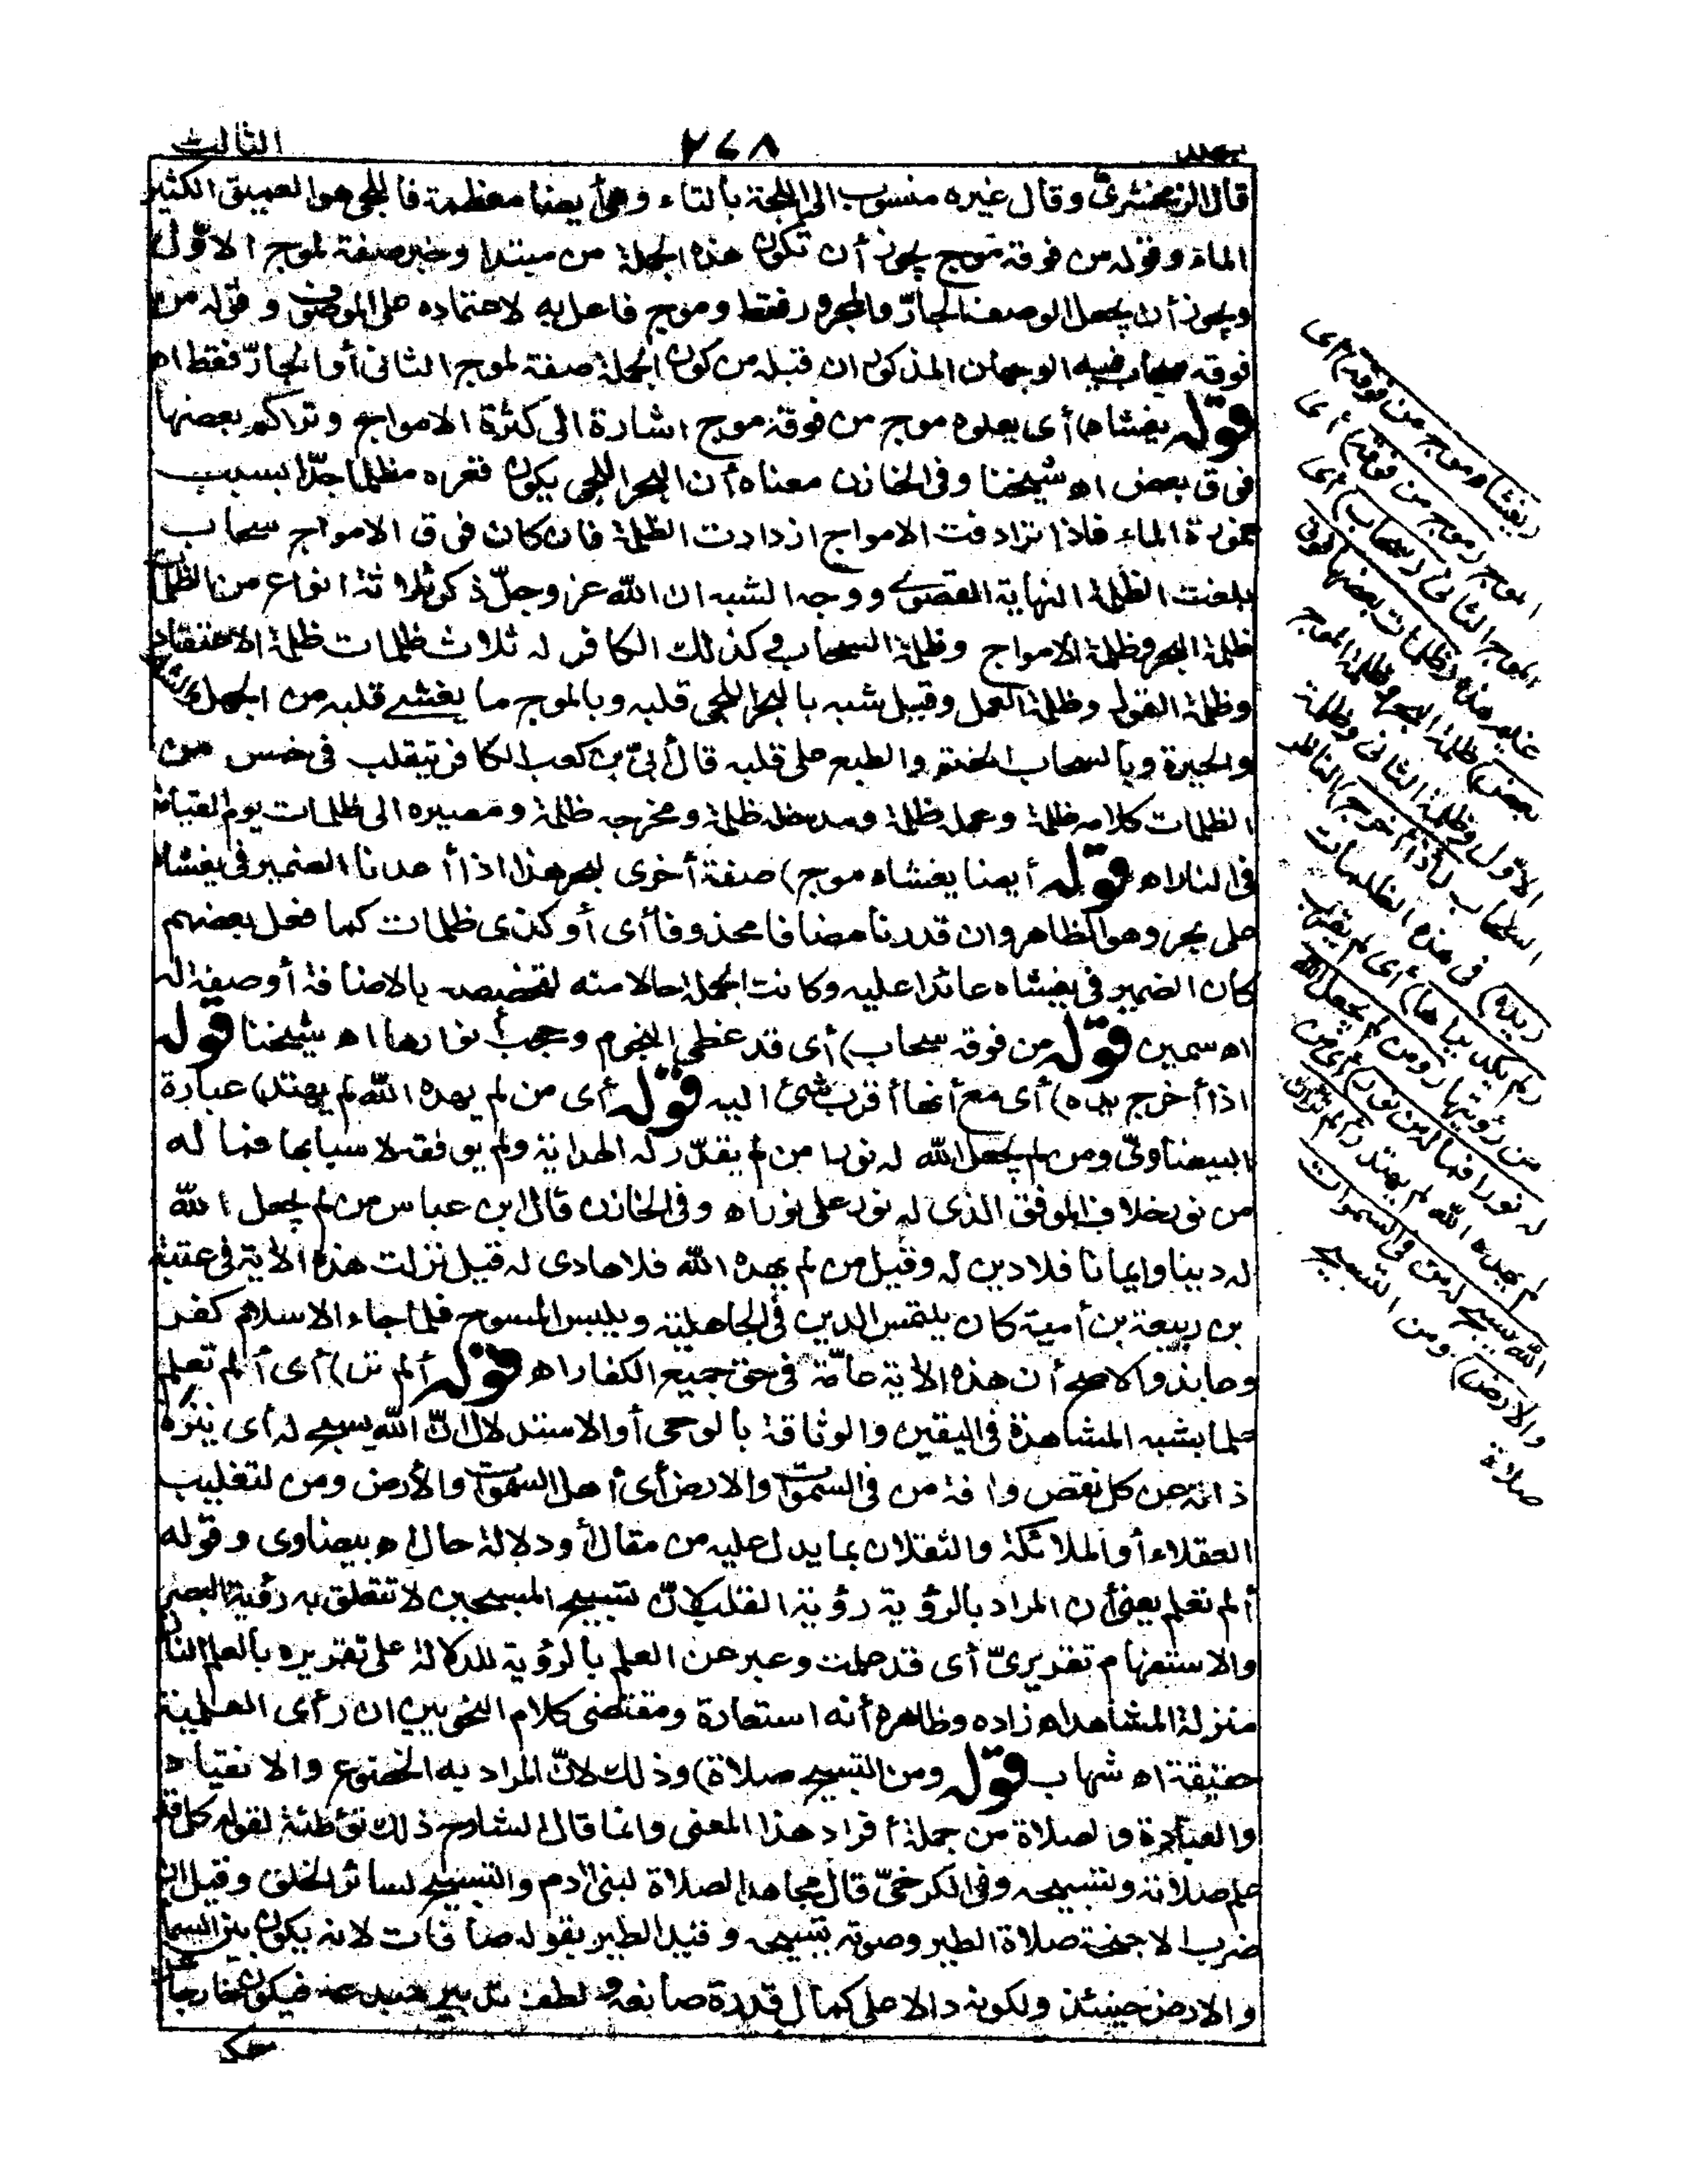 الثالث
٢٤٨
قال الزمخشرى وقال غيره منسوب الى اللجة بالتاء وهى أيضا معظمه فاللجى هو العميق الكثير
الماء وقوله من فوقه موج يجوز أن تكون هذه الجملة من مبتدا وخبر صفة لموج الاوّل
ويجوز أن يجعل الوصف الجارّ والمجرور فقط وموج فاعل به لاعتماده على الموصوف وقوله من
فوقه سحاب فيه الوجهان المذكوران قبله من كون الجملة صفة لموج الثانى أو الجارّ فقط اه
قوله يغشاه) أى يعلوه موج من فوقه موج اشارة الى كثرة الامواج وتراكم بعضها
فوق بعض اه شيخنا وفى الخازن معناه أن البحر اللجى يكون قعره مظلما جدّا بسبب
غمورة الماء فاذا ترادفت الامواج ازدادت الظلمة فان كان فوق الامواج سحاب
بلغت الظلمة النهاية القصوى ووجه الشبه ان الله عز وجلّ ذكر ثلاثة انواع من الظلمات
ظلمة البحر وظلمة الامواج وظلمة السحاب وكذلك الكافر له ثلاث ظلمات ظلمة الاعتقاد
وظلمة القول وظلمة العمل وقيل شبه بالبحر اللجى قلبه وبالموج ما يغشى قلبه من الجهل والشك
والحيرة وبالسحاب الختم والطبع على قلبه قال أبىّ بن كعب الكافر يتقلب فى خمس من
الظلمات كلامه ظلمة وعمله ظلمة ومدخله ظلمة ومخرجه ظلمة ومصيره الى ظلمات يوم القيامة
فى النار اه قوله أيضا يغشاه موج) صفة أخرى لبحر هذا اذا أعدنا الضمير فى يغشاه
على بحر وهو الظاهر وان قدرنا مضافا محذوفا أى أو كذى ظلمات كما فعل بعضهم
كان الضمير فى يغشاه عائدا عليه وكانت الجملة حالا منه لتخصيصه بالاضافة أو صفة له
اه سمين قوله من فوقه سحاب) أى قد غطى النجوم وحجب أنوارها اه شيخنا قوله
اذا أخرج يده) أى مع أنها أقرب شئ اليه قوله أى من لم يهده الله لم يهتد) عبارة
البيضاوىّ ومن لم يجعل الله له نورا من لم يقدّر له الهداية ولم يوفقه لاسبابها فما له
من نور بخلاف الموفق الذى له نور على نور اه وفى الخازن قال ابن عباس من لم يجعل الله
له دينا وايمانا فلا دين له وقيل من لم يهده الله فلا هادى له قيل نزلت هذه الآية فى عتبة
بن ربيعة بن أمية كان يلتمس الدين فى الجاهلية ويلبس المسوح فلما جاء الاسلام كفر
وعاند والاصح أن هذه الآية عامّة فى حق جميع الكفار اه قوله ألم تر) أى ألم تعلم
علما يشبه المشاهدة فى اليقين والوثاقة بالوحى أو الاستدلال انّ الله يسبح له أى ينزه
ذاته عن كل نقص وآفة من فى السموات والارض أى أهل السموات والأرض ومن لتغليب
العقلاء أو الملائكة والثقلان بما يدل عليه من مقال أو دلالة حال اه بيضاوى وقوله
ألم تعلم يعنى أن المراد بالرؤية رؤية القلب لانّ تسبيح المسبحين لا تتعلق به رؤية البصر
والاستفهام تقريرىّ أى قد علمت وعبر عن العلم بالرؤية للدلالة على تقريره بالعلم النازل
منزلة المشاهد اه زاده وظاهره أنه استعارة ومقتضى كلام النحويين ان رأى العلمية
حقيقة اه شهاب قوله ومن التسبيح صلاة) وذلك لانّ المراد به الخضوع والانقياد
والعبادة والصلاة من جملة أفراد هذا المعنى وانما قال الشارح ذلك توطئة لقوله كل قد
علم صلاته وتسبيحه وفى الكرخىّ قال مجاهد الصلاة لبنى آدم والتسبيح لسائر الخلق وقيل ان
ضرب الاجنحة صلاة الطير وصوته تسبيحه وقيد الطير بقوله صافات لانه يكون بين السماء
والارض حينئذ ولكونه دالا على كمال قدرة صانعه ولطف تدبير مبدعه فيكون خارجا
(يغشاه موج من فوقه) أى
الموج (موج من فوقه) أى
الموج الثانى (سحاب) أى
غيم هذه (ظلمات بعضها فوق
بعض) ظلمة البحر وظلمة الموج
الاوّل وظلمة الثانى وظلمة
السحاب (اذا أخرج) الناظر
(يده) فى هذه الظلمات
(لم يكد يراها) أى لم يقرب
من رؤيتها (ومن لم يجعل الله
له نورا فما له من نور) أى من
لم يهده الله لم يهتد (ألم تر أن
الله يسبح له من فى السموات
والارض) ومن التسبيح
صلاة